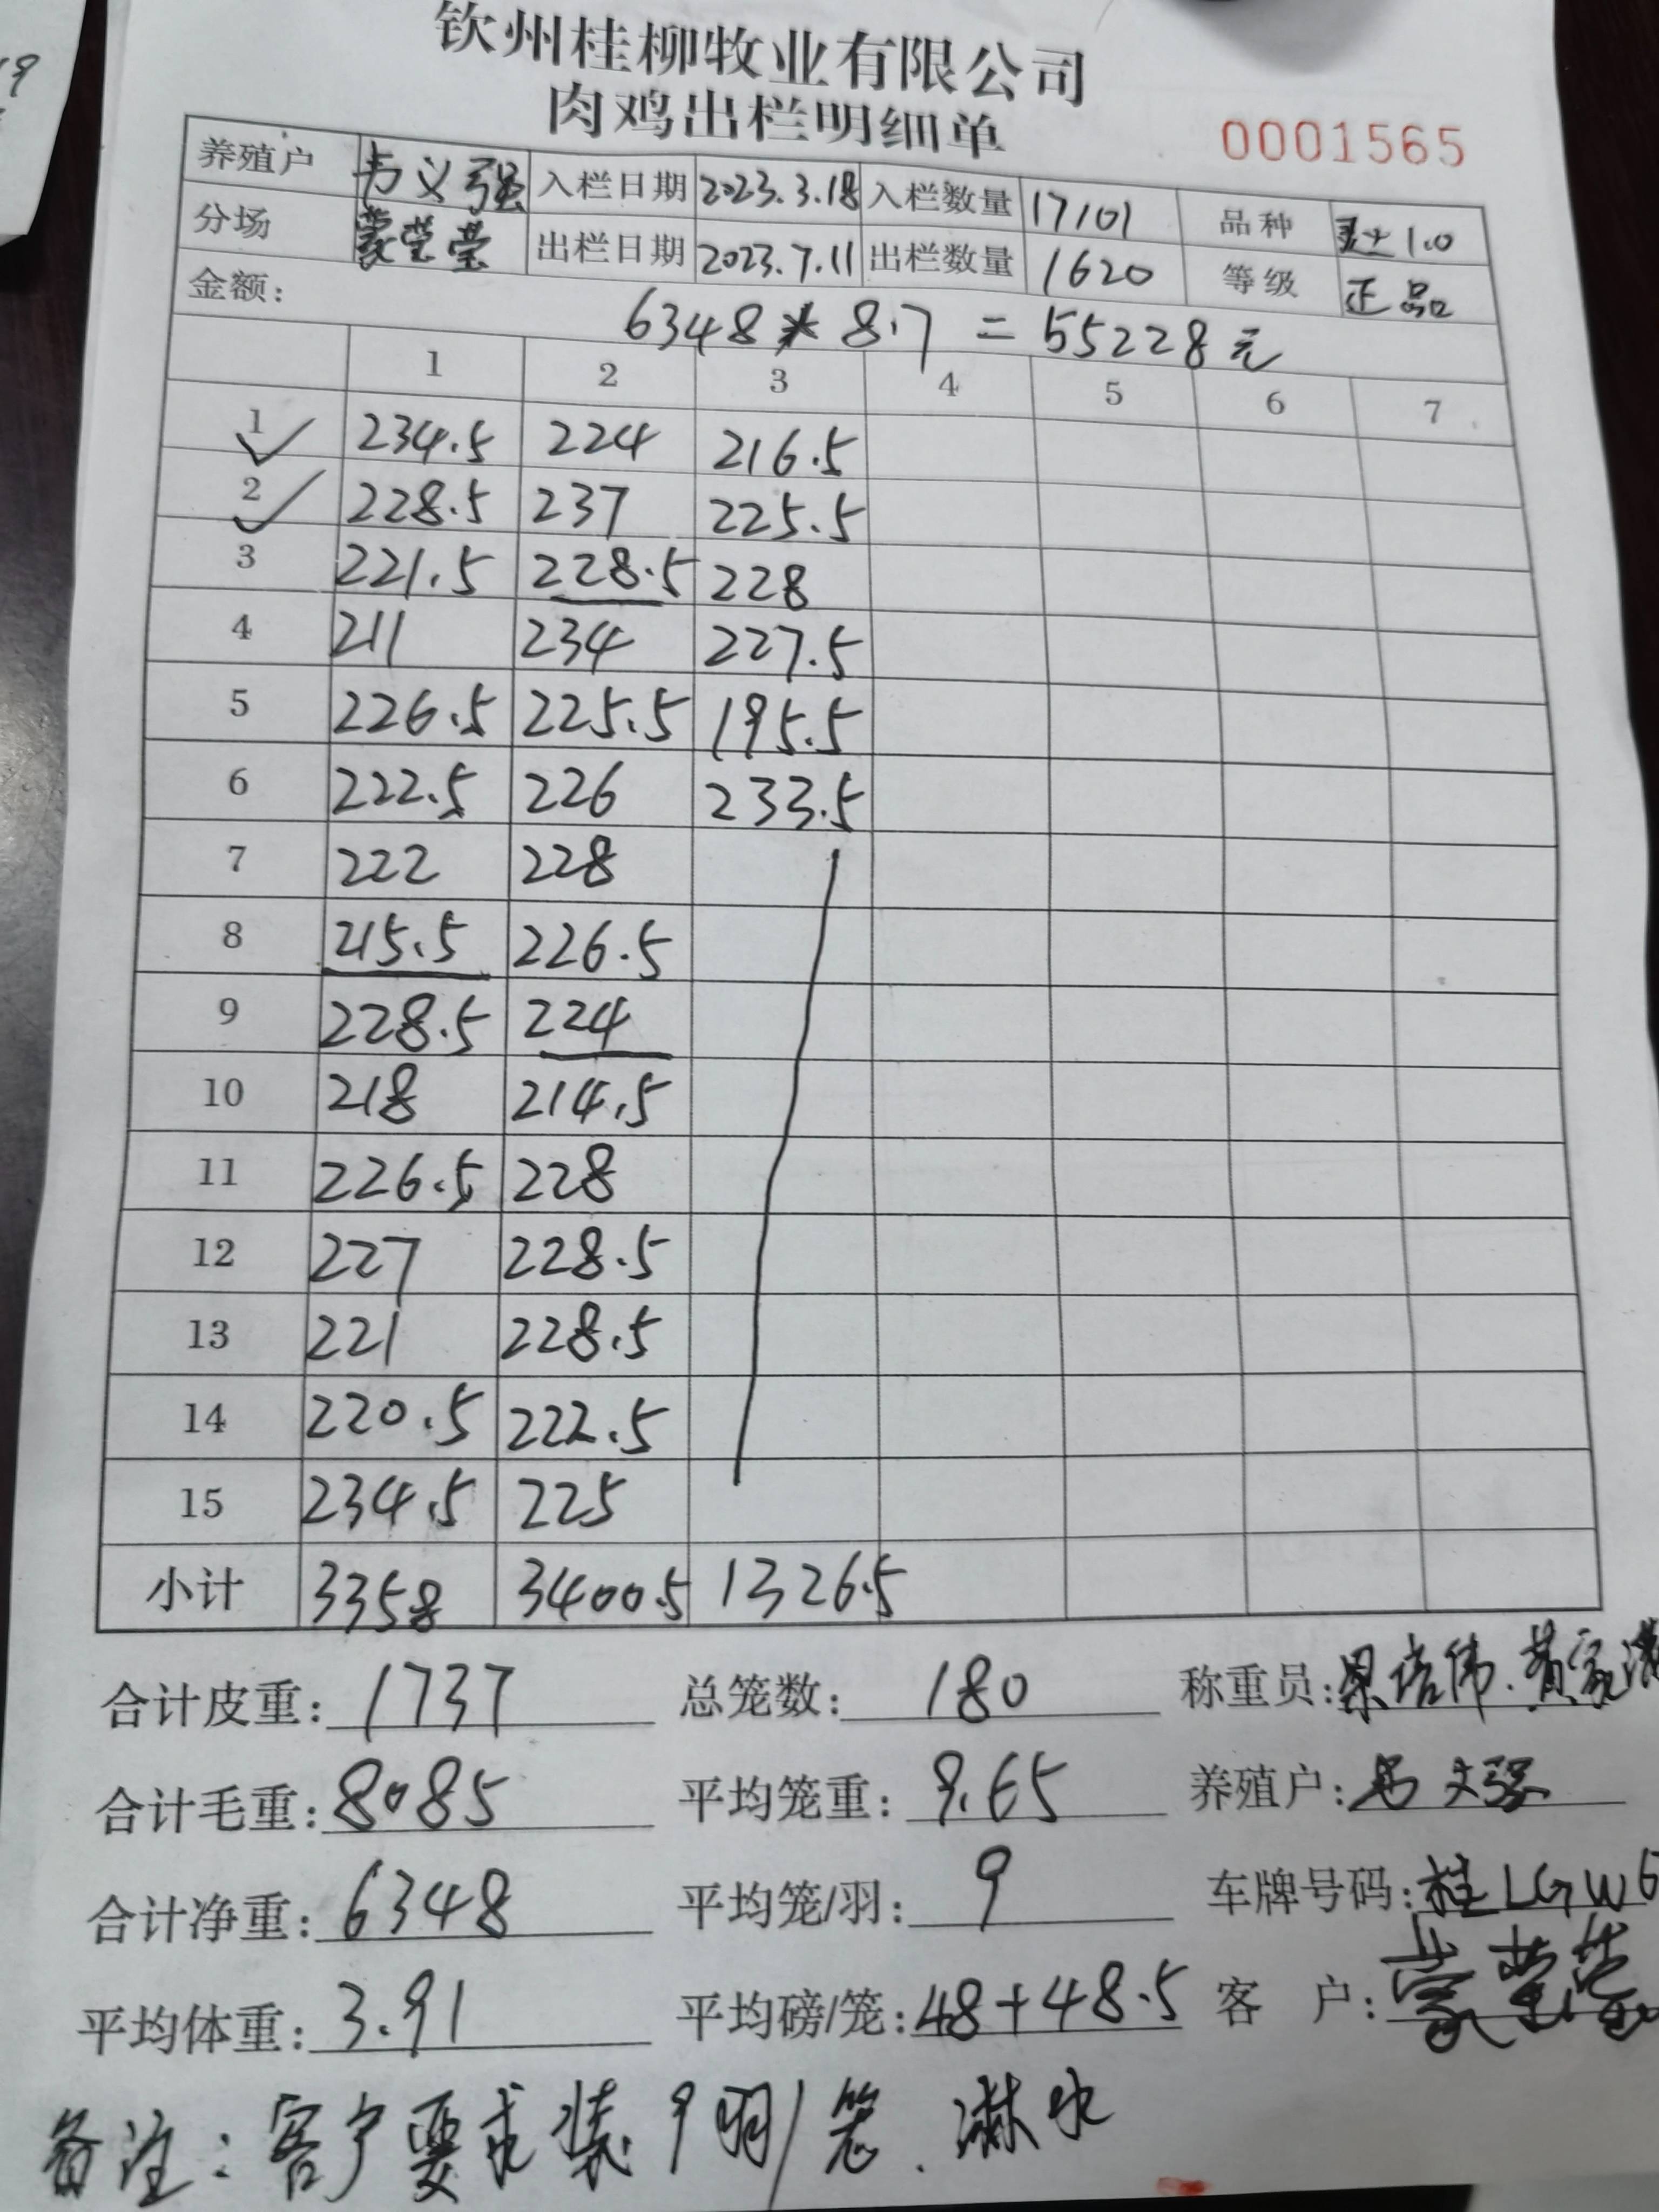 钦州桂柳牧业有限公司
肉鸡出栏明细单
0001565
养殖户 韦义强 入栏日期 2023.3.18 入栏数量 17101 品种 灵土1.0
分场 蒙莹莹 出栏日期 2023.7.11 出栏数量 1620 等级 正品
金额: 6348*8.7=55228元
1 2 3 4 5 6 7
1 234.5 224 216.5
2 228.5 237 225.5
3 221.5 228.5 228
4 211 234 227.5
5 226.5 225.5 195.5
6 222.5 226 233.5
7 222 228
8 215.5 226.5
9 228.5 224
10 218 214.5
11 226.5 228
12 227 228.5
13 221 228.5
14 220.5 222.5
15 234.5 225
小计 3358 3400.5 1326.5
合计皮重: 1737 总笼数: 180 称重员:
合计毛重: 8085 平均笼重: 9.65 养殖户: 韦义强
合计净重: 6348 平均笼/羽: 9 车牌号码: 桂LGW
平均体重: 3.91 平均磅/笼: 48+48.5 客户: 蒙莹莹
备注:客户要求装9羽/笼.淋水